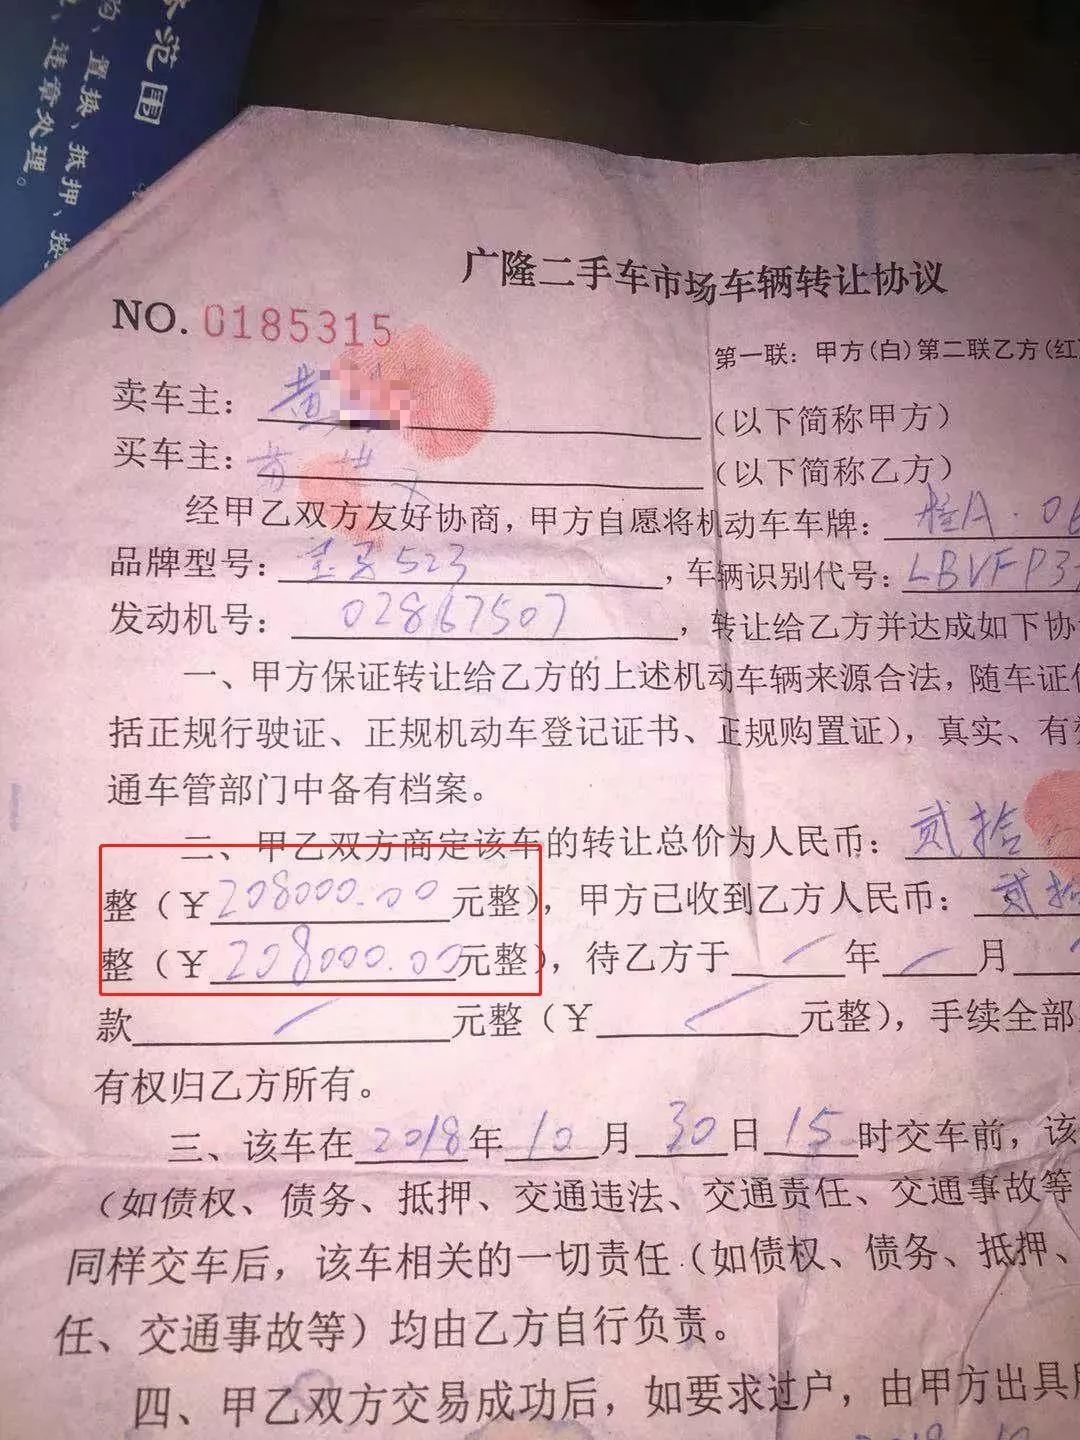 范围
置换、抵押、按
违章处理。
广隆二手车市场车辆转让协议
NO. 0185315
第一联：甲方(白)第二联乙方(红
卖车主：黄
（以下简称甲方）
买车主：
（以下简称乙方）
经甲乙双方友好协商，甲方自愿将机动车车牌：桂A·06
品牌型号：宝马523，车辆识别代号：LBVFP3
发动机号：02867507，转让给乙方并达成如下协
一、甲方保证转让给乙方的上述机动车辆来源合法，随车证
括正规行驶证、正规机动车登记证书、正规购置证），真实、有
通车管部门中备有档案。
二、甲乙双方商定该车的转让总价为人民币：贰拾
整（￥208000.00元整），甲方已收到乙方人民币：贰拾
整（￥208000.00元整），待乙方于/年/月
款/元整（￥/元整），手续全部
有权归乙方所有。
三、该车在2018年10月30日15时交车前，该
（如债权、债务、抵押、交通违法、交通责任、交通事故等
同样交车后，该车相关的一切责任（如债权、债务、抵押、
任、交通事故等）均由乙方自行负责。
四、甲乙双方交易成功后，如要求过户，由甲方出具